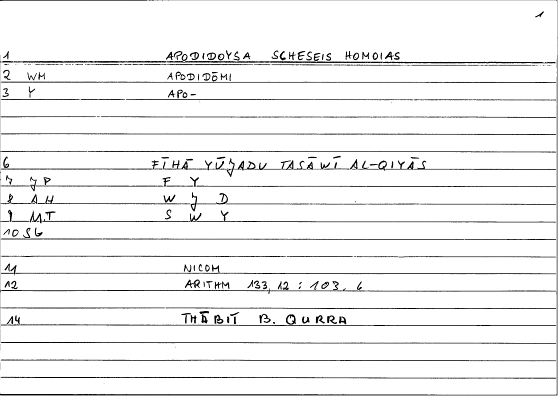 1
1 APODIDOYSA SCHESEIS HOMOIAS
2 WM APODIDŌMI
3 Y APO-
6 FĪHĀ YŪJADU TASĀWĪ AL-QIYĀS
7 JP F Y
8 A.H W J D
9 M.T S W Y
10 SG
11 NICOM
12 ARITHM 133,12 : 103.6
14 THĀBIT B. QURRA